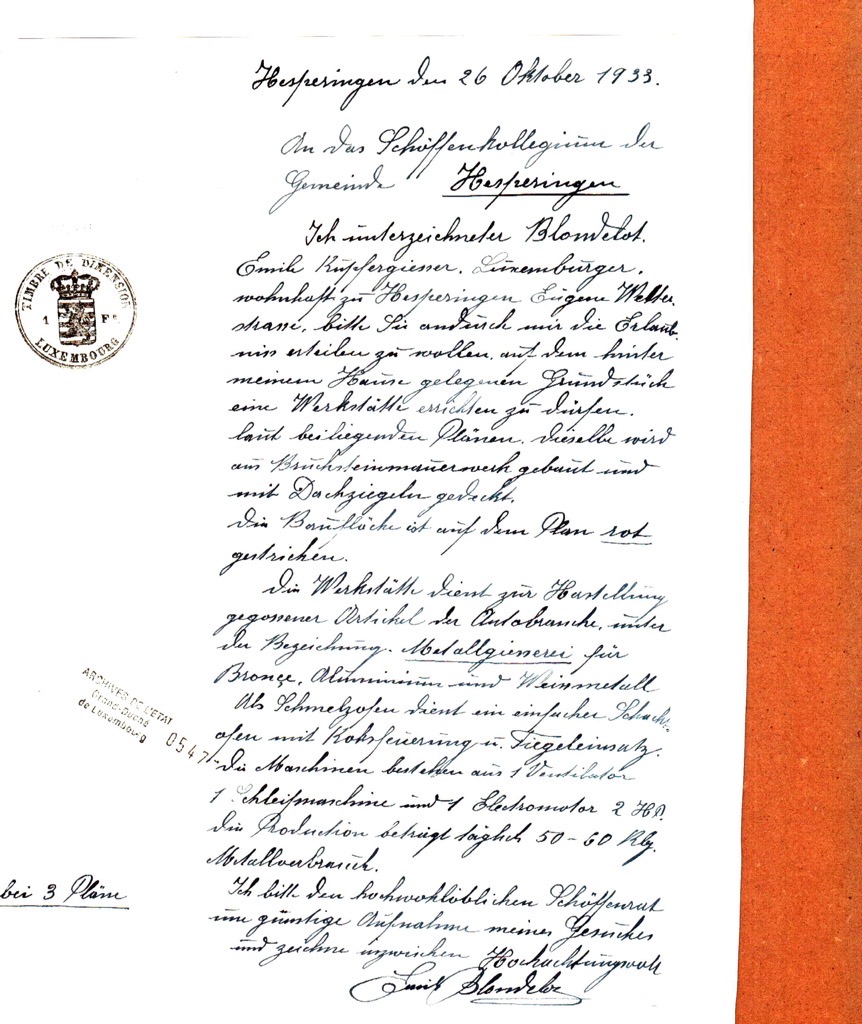 Hesperingen den 26 Oktober 1933.
An das Schöffenkollegium der
Gemeinde Hesperingen
Ich unterzeichneter Blondelot.
Emile Kupfergiesser. Luxemburger.
wohnhaft zu Hesperingen Eugene Welter
strasse, bitte Sie andurch mir die Erlaub-
niss erteilen zu wollen, auf dem hinter
meinem Hause gelegenen Grundstück
eine Werkstätte errichten zu dürfen.
laut beiliegenden Plänen. Dieselbe wird
aus Bruchsteinmauerwerk gebaut und
mit Dachziegeln gedeckt.
Die Baufläche ist auf dem Plan rot
gestrichen.
Die Werkstätte dient zur Herstellung
gegossener Artikel der Autobranche, unter
der Bezeichnung. Metallgiesserei für
Bronçe, Aluminium und Weissmetall
Als Schmelzofen dient ein einfacher Schacht-
ofen mit Koksfeuerung u. Tiegeleinsatz.
Die Maschinen bestehen aus 1 Ventilator
1 Schleifmaschine und 1 Electromotor 2 HP.
Die Production beträgt täglich 50-60 Klg.
Metallverbrauch.
Ich bitte den hochwohllöblichen Schöffenrat
um günstige Aufnahme meines Gesuches
und zeichne inzwischen Hochachtungsvoll
Emile Blondelot
bei 3 Pläne
TIMBRE DE DIMENSION
1 Fr
LUXEMBOURG
ARCHIVES DE L'ETAT
Grand-Duché
de Luxembourg
0547